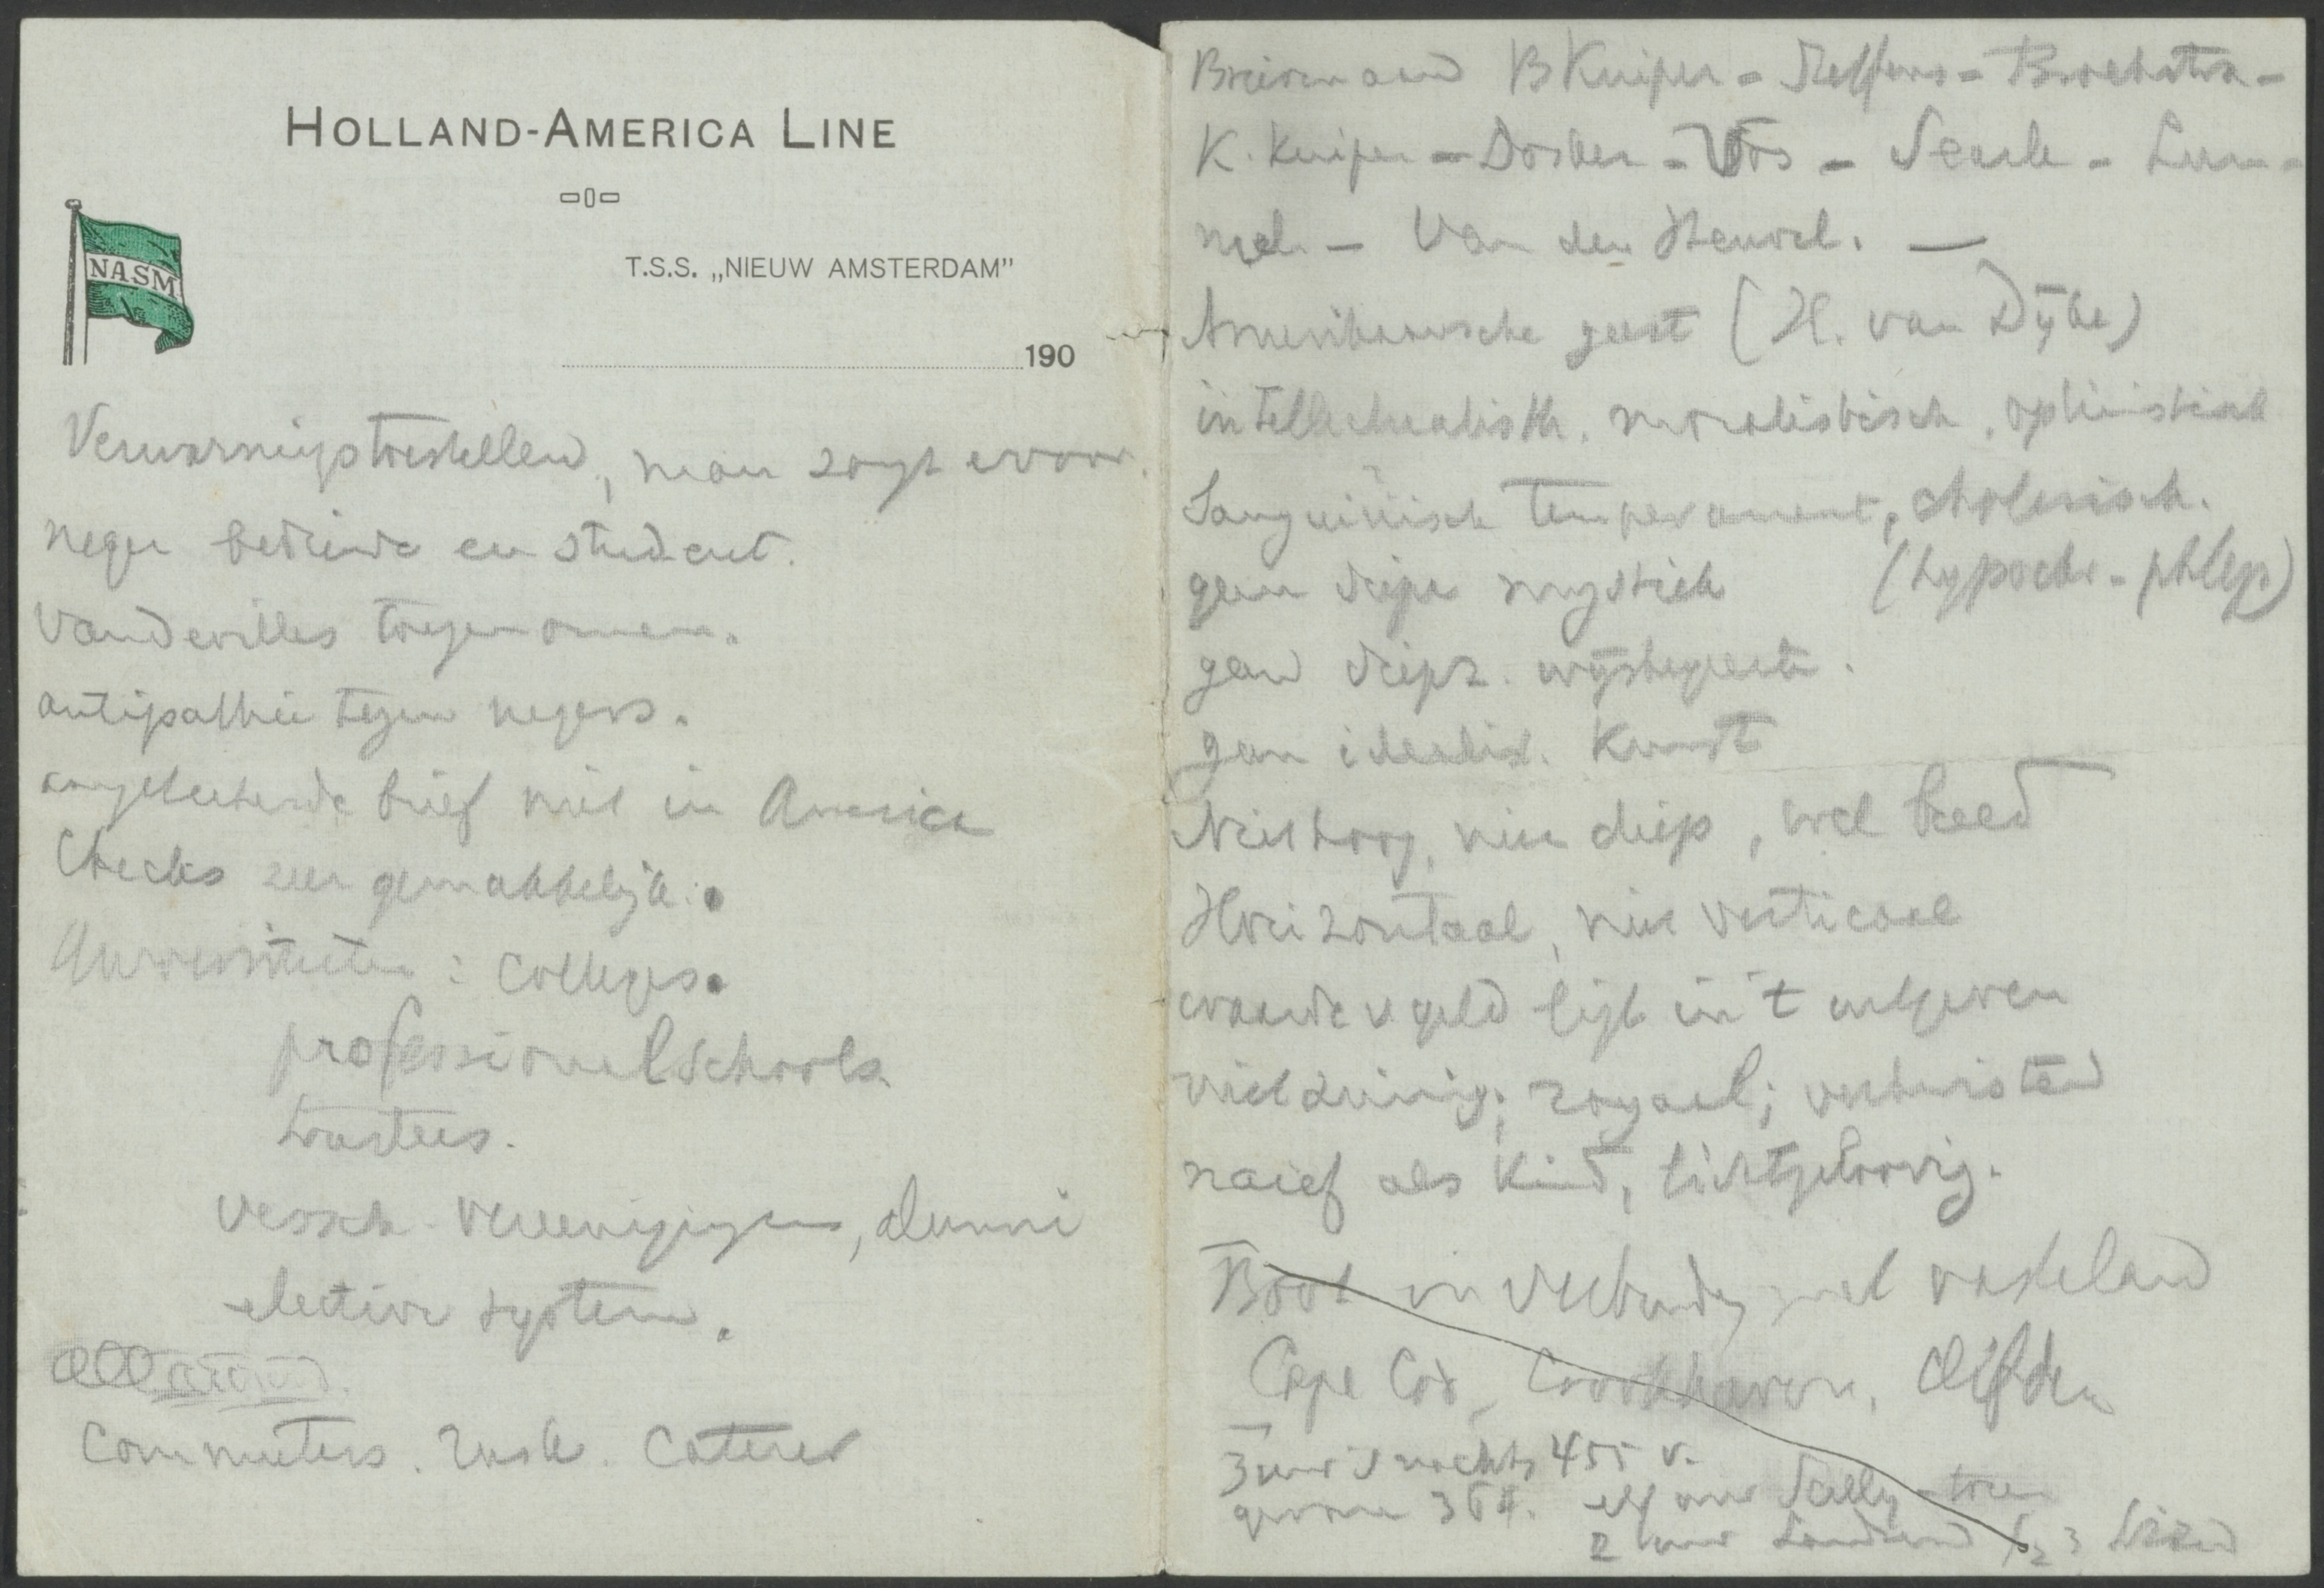 HOLLAND-AMERICA LINE
NASM
T.S.S. „NIEUW AMSTERDAM”
190
Verwarmingstoestellen, man zorgt ervoor.
neger bediende en student.
Vaudevilles toegenomen.
antipathie tegen negers.
aangeteekende brief niet in America
Checks zeer gemakkelijk.
Universiteiten: Colleges.
professional schools
trustees.
versch. vereenigingen, alumni
elective system.
all around.
Commuters. rush. Caterer
B Kuiper - Steffens - Broekstra -
K. Kuiper - Dosker - Vos - Searle - Lum-
mel - Van den Heuvel. —
Amerikaansche geest (H. van Dÿke)
intellectualistisch. moralistisch. optimistisch
Sanguinisch temperament, cholerisch.
geen diepe mystiek (hypochr. - phlegm)
geen diepz. wijsbegeerte.
geen idealist. Kunst
Niet hoog, niet diep, wel breed
Horizontaal, niet verticaal
waarde v geld ligt in 't uitgeven
niet zuinig; royaal; verkwistend
naief als kind, lichtgeloovig.
Boot in verbinding met vasteland
Cape Cod, Crookhaven, Clifden
3 uur 's nachts 455 v.
gevaren 364. elf uur Scilly - toren
2 uur Landsend Lizard